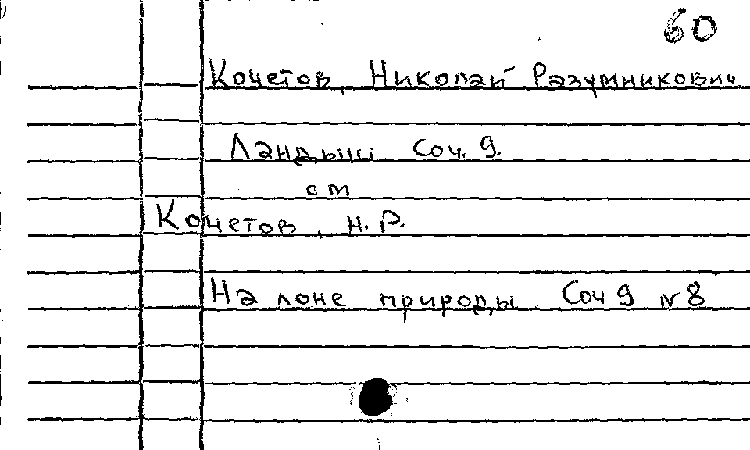 60
Кочетов, Николай Разумникович
Ландыши Соч. 9.
см
Кочетов, Н.Р.
На лоне природы Соч 9 № 8